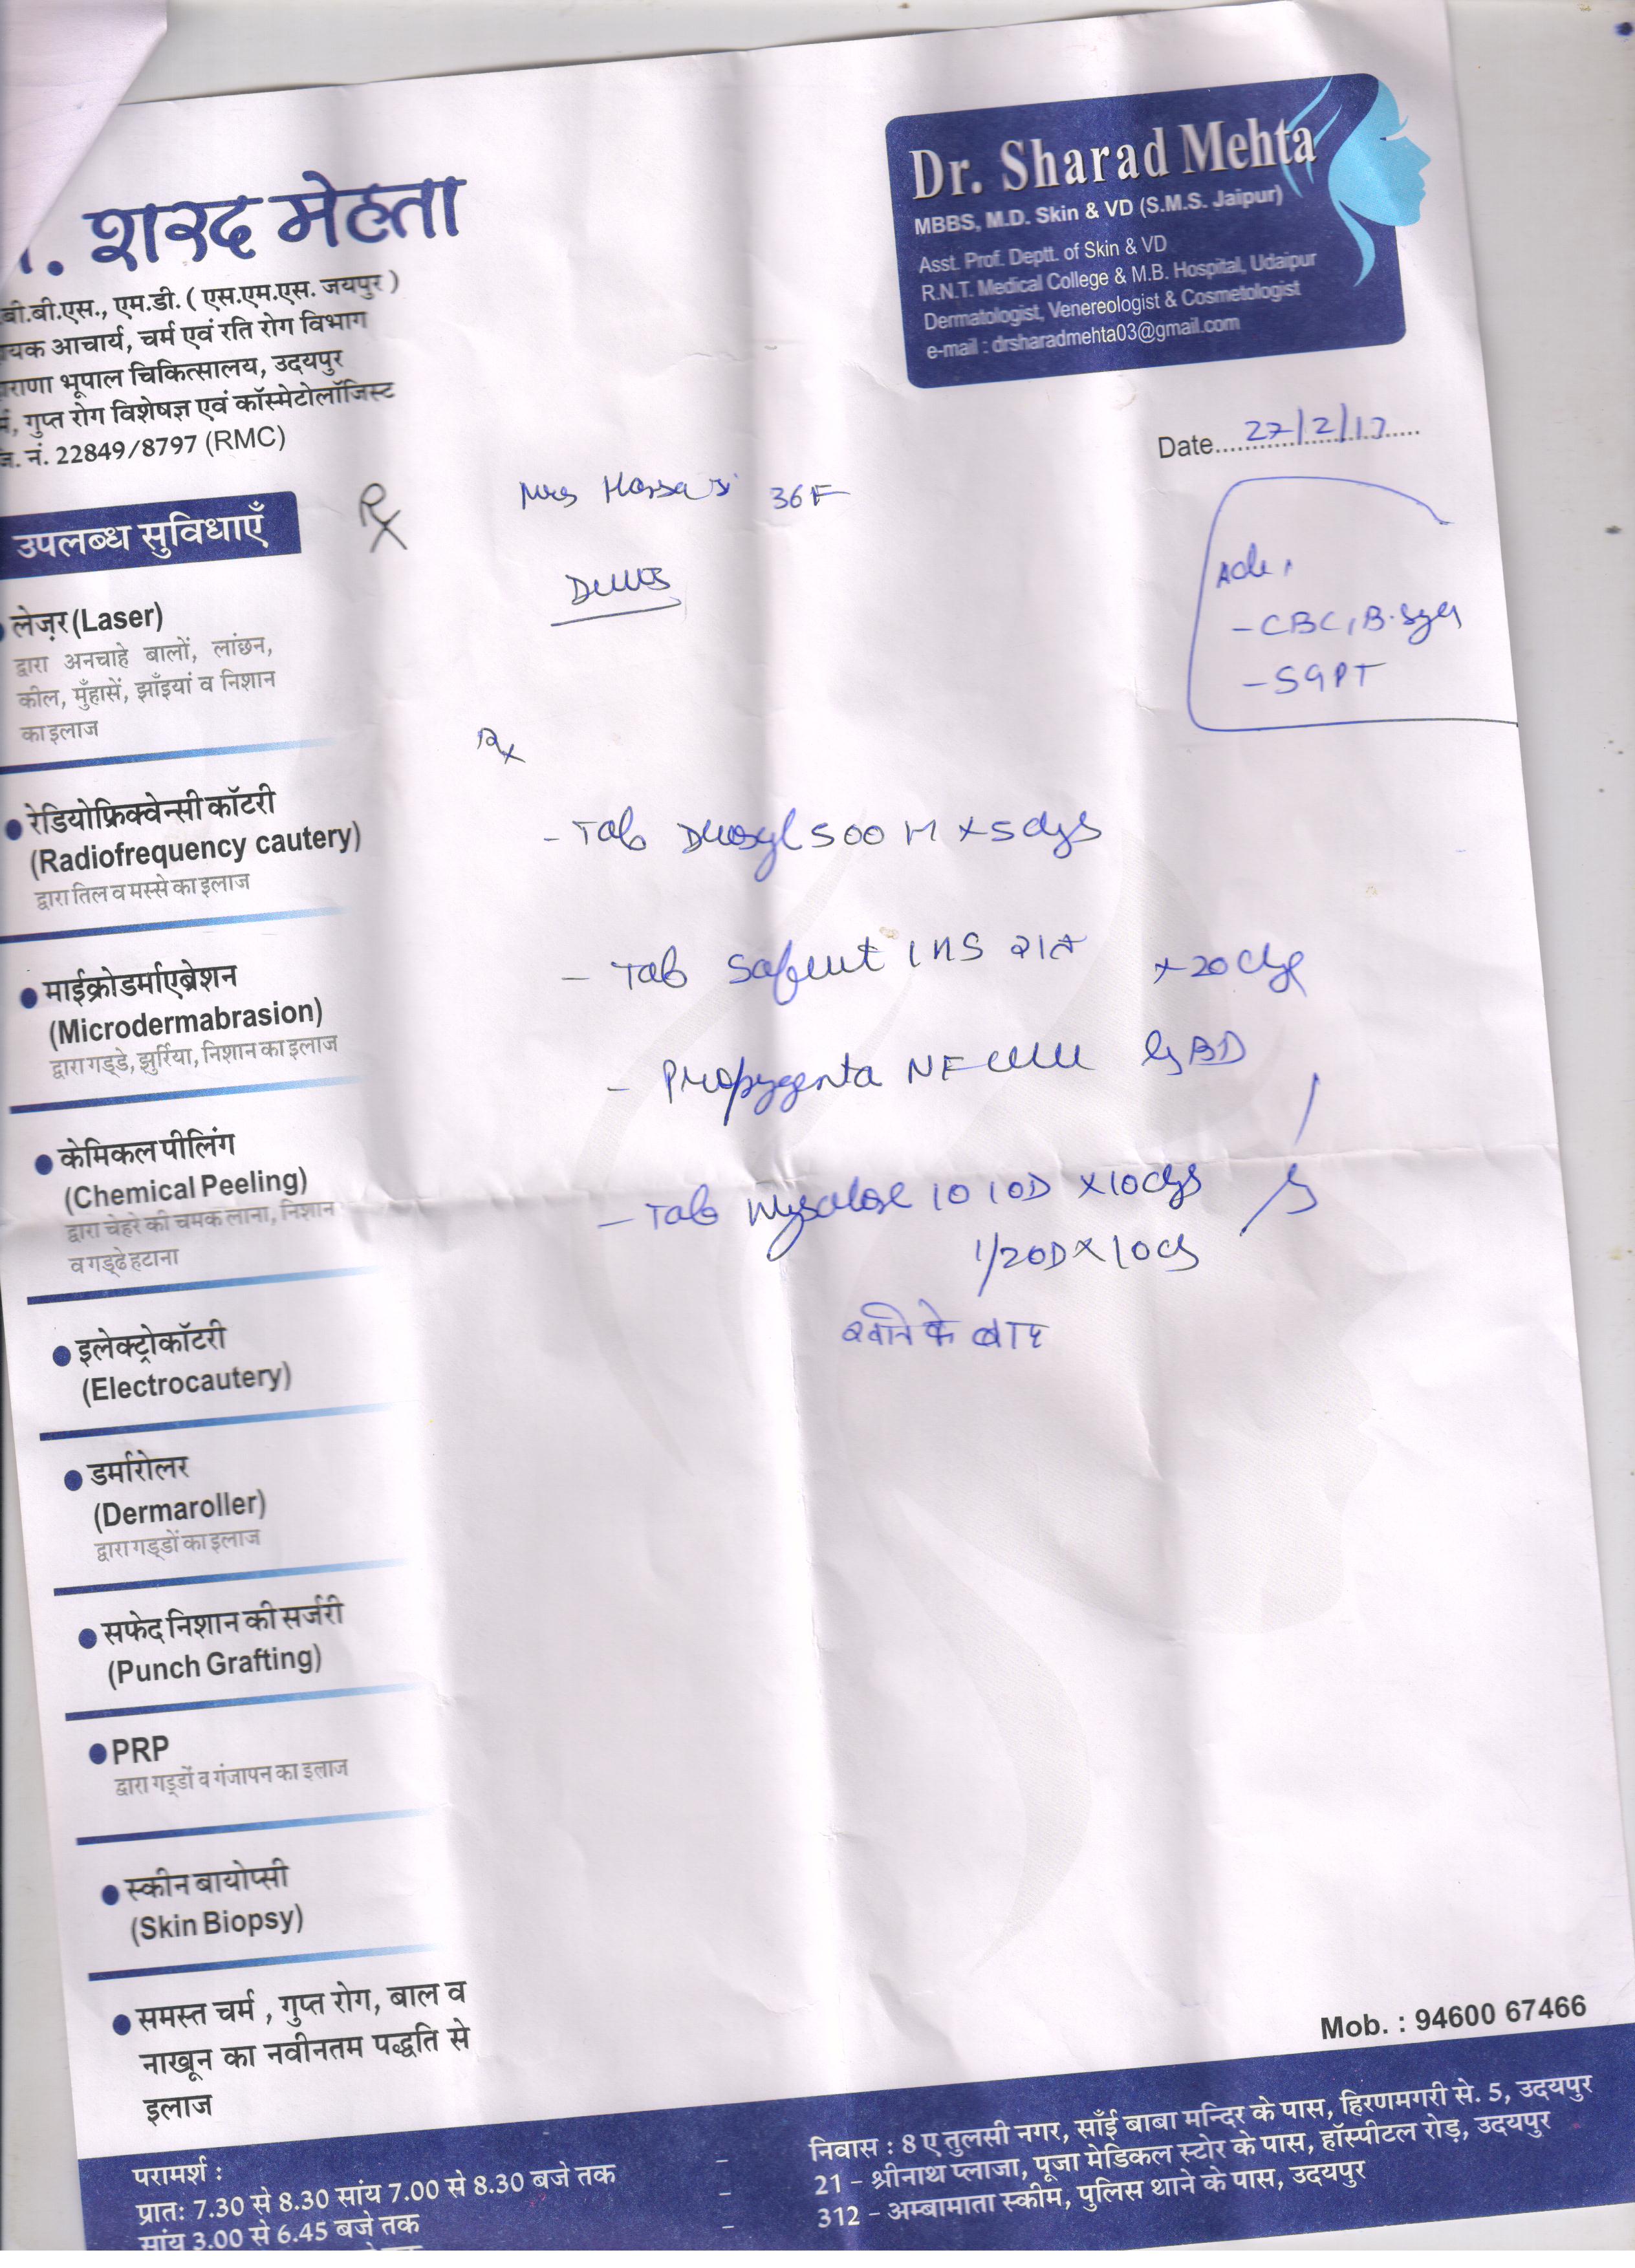 . शरद मेहता
बी.बी.एस., एम.डी. ( एस.एम.एस. जयपुर )
यक आचार्य, चर्म एवं रति रोग विभाग
राणा भूपाल चिकित्सालय, उदयपुर
, गुप्त रोग विशेषज्ञ एवं कॉस्मेटोलॉजिस्ट
. नं. 22849/8797 (RMC)
Dr. Sharad Mehta
MBBS, M.D. Skin & VD (S.M.S. Jaipur)
Asst. Prof. Deptt. of Skin & VD
R.N.T. Medical College & M.B. Hospital, Udaipur
Dermatologist, Venereologist & Cosmetologist
e-mail : drsharadmehta03@gmail.com
Date 27/2/17
Mrs 36 F
- CBC, B.
- SGPT
Rx
- Tab 500 M x 5 days
- Tab 1 HS रात x 20 days
- NF BD
- Tab 10 10D x 10 days
1/20D x 10 d
खाने के बाद
उपलब्ध सुविधाएँ
लेज़र (Laser)
द्वारा अनचाहे बालों, लांछन,
कील, मुँहासें, झाँइयां व निशान
का इलाज
रेडियोफ्रिक्वेन्सी कॉटरी
(Radiofrequency cautery)
द्वारा तिल व मस्से का इलाज
माईक्रोडर्माएब्रेशन
(Microdermabrasion)
द्वारा गड्डे, झुर्रिया, निशान का इलाज
केमिकल पीलिंग
(Chemical Peeling)
द्वारा चेहरे की चमक लाना, निशान
व गड्ढे हटाना
इलेक्ट्रोकॉटरी
(Electrocautery)
डर्मारोलर
(Dermaroller)
द्वारा गड्डों का इलाज
सफेद निशान की सर्जरी
(Punch Grafting)
PRP
द्वारा गड्डों व गंजापन का इलाज
स्कीन बायोप्सी
(Skin Biopsy)
समस्त चर्म , गुप्त रोग, बाल व
नाखून का नवीनतम पद्धति से
इलाज
Mob. : 94600 67466
परामर्श :
प्रात: 7.30 से 8.30 सांय 7.00 से 8.30 बजे तक
सांय 3.00 से 6.45 बजे तक
निवास : 8 ए तुलसी नगर, साँई बाबा मन्दिर के पास, हिरणमगरी से. 5, उदयपुर
21 - श्रीनाथ प्लाजा, पूजा मेडिकल स्टोर के पास, हॉस्पीटल रोड़, उदयपुर
312 - अम्बामाता स्कीम, पुलिस थाने के पास, उदयपुर